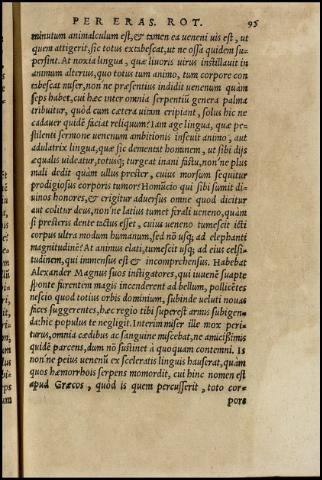 PER ERAS. ROT. 95
minutum animalculum est, & tamen ea ueneni uis est, ut
quem attigerit, sic totus extabescat, ut ne ossa quidem su-
persint. At noxia lingua, quæ liuoris uirus instillauit in
animum alterius, quo totus tum animo, tum corpore con
tabescat miser, non ne præsentius indidit uenenum quàm
seps habet, cui hæc inter omnia serpentiũ genera palma
tribuitur, quòd cum cætera uitam eripiant, solus hic ne
cadauer quidẽ faciat reliquum? Iam age lingua, quæ pe-
stilenti sermone uenenum ambitionis inseuit animo, aut
adulatrix lingua, quæ sic dementat hominem, ut sibi dijs
æqualis uideatur, totusq; turgeat inani fastu, non'ne plus
mali dedit quàm ullus prester, cuius morsum sequitur
prodigiosus corporis tumor? Homũcio qui sibi sumit di-
uinos honores, & erigitur aduersus omne quod dicitur
aut colitur deus, non'ne latius tumet sirali ueneno, quàm
si presteris dente tactus esset, cuius ueneno tumescit icti
corpus ultra modum humanum, sed nõ usq; ad elephanti
magnitudinẽ? At animus elati, tumescit usq; ad eius celsi-
tudinem, qui immensus est & incomprehensus. Habebat
Alexander Magnus suos instigatores, qui iuuenẽ suapte
sponte furentem magis incenderent ad bellum, pollicẽtes
nescio quod totius orbis dominium, subinde ueluti nouas
faces suggerentes, hæc regio tibi superest armis subigen-
da: hic populus te negligit. Interim miser ille mox peri-
turus, omnia cædibus ac sanguine miscebat, ne amicissimis
quidẽ parcens, dum nõ sustinet à quoquam contemni. Is
non'ne peius uenenũ ex sceleratis linguis hauserat, quàm
quos hæmorrhois serpens momordit, cui hinc nomen est
apud Græcos, quòd is quem percusserit, toto cor-
pore